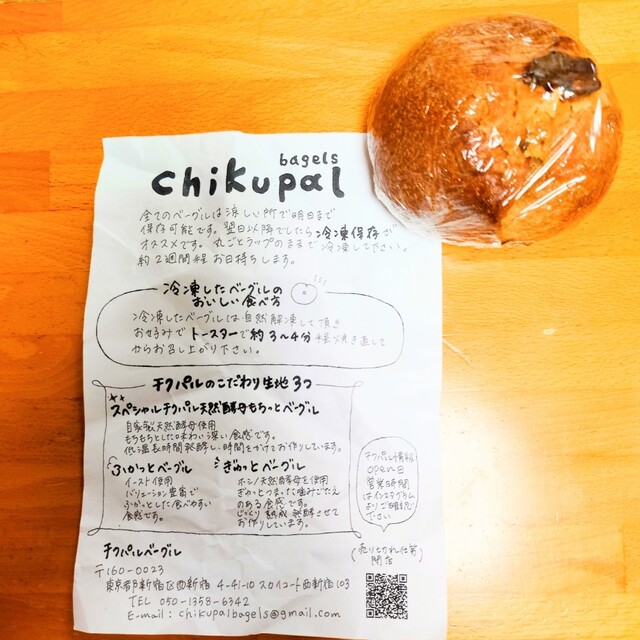 bagels
chikupal
全てのベーグルは涼しい所で明日まで
保存可能です。翌日以降でしたら冷凍保存が
オススメです。丸ごとラップのままで冷凍してください。
約2週間程お日持ちします。
冷凍したベーグルの
おいしい食べ方
冷凍したベーグルは自然解凍して頂き
お好みでトースターで約3〜4分程焼き直して
からお召し上がり下さい。
チクパルのこだわり生地3つ
スペシャルチクパル天然酵母もちっとベーグル
自家製天然酵母使用
もちもちとした味わい深い食感です。
低温長時間発酵し、時間をかけてお作りしています。
ふかっとベーグル
イースト使用
バリエーション豊富で
ふかっとした食べやすい
食感です。
ぎゅっとベーグル
ホシノ天然酵母を使用
ぎゅっとつまった噛みごたえ
のある食感です。
じっくり熟成発酵させて
お作りしています。
チクパル情報
open日
営業時間
はインスタグラム
よりご確認く
ださい
(売り切れ次第
閉店)
チクパルベーグル
〒160-0023
東京都新宿区西新宿 4-41-10 スカイコート西新宿103
TEL 050-1358-6342
E-mail: chikupalbagels@gmail.com